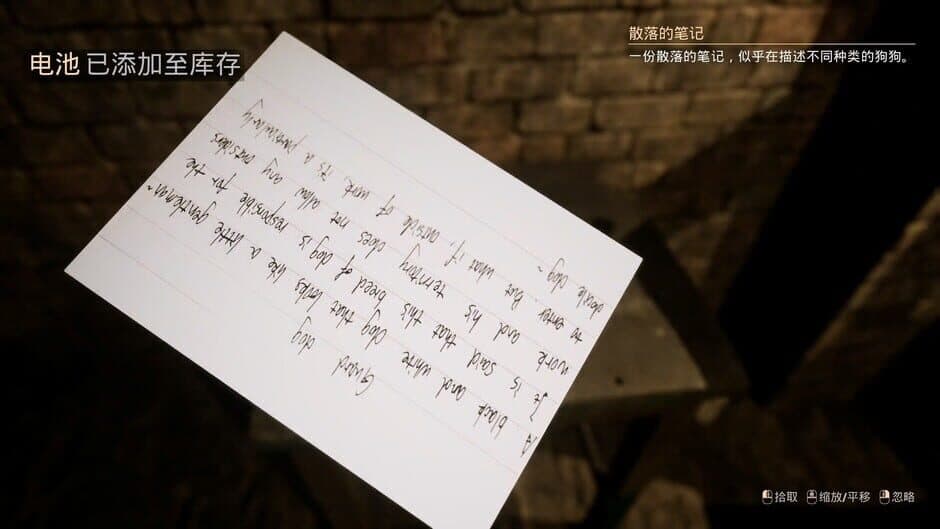 电池 已添加至库存
散落的笔记
一份散落的笔记，似乎在描述不同种类的狗狗。
Guard dog
A black and white dog that looks like a little gentleman~
It is said that this breed of dog is responsible for the
work and his territory does not allow any outsiders
to enter. But what if, outside of work, it's a particularly
docile dog ~
拾取 缩放/平移 忽略